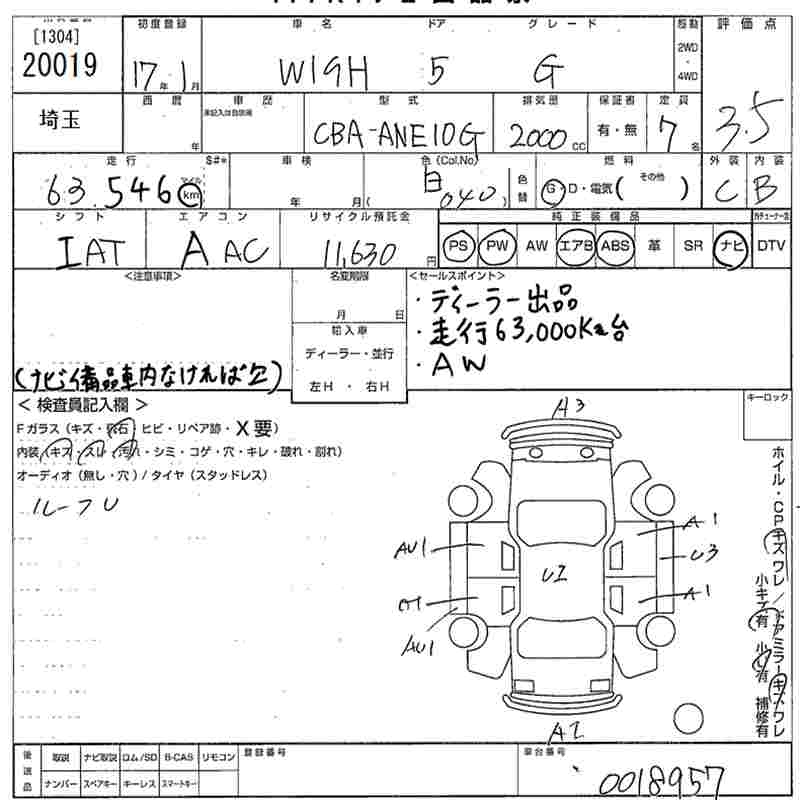 [1304]
20019
初度登録
17年1月
車名
WIGH
ドア
5
グレード
G
駆動
2WD
・
4WD
評価点
3.5
埼玉
西暦
年
車歴
未記入は自家用
型式
CBA-ANE10G
排気量
2000cc
保証書
有・無
定員
7名
走行
63,546
マイル
km
S#*
車検
年 月(
色(Col.No)
白 040)
色替
燃料
G・D・電気( その他 )
外装
C
内装
B
シフト
IAT
エアコン
AAC
リサイクル預託金
11,630円
純正装備品
PS PW AW エアB ABS 革 SR ナビ
地デジチューナー
DTV
<注意事項>
(ナビ備品車内なければ欠)
名変期限
月 日
輸入車
ディーラー・並行
左H ・ 右H
<セールスポイント>
・ディーラー出品
・走行63,000Km台
・AW
< 検査員記入欄 >
Fガラス(キズ・飛石・ヒビ・リペア跡・X要)
内装(キズ・スレ・汚れ・シミ・コゲ・穴・キレ・破れ・割れ)
オーディオ(無し・穴)/タイヤ(スタッドレス)
ルーフU
キーロック
A3
A1
AU1
U3
UI
A1
AU1
AI
ホイル・CPキズワレ/ドアミラーキズワレ
小キズ有 小U有 補修有
後送品
取説 ナビ取説 ロム/SD B-CAS リモコン
ナンバー スペアキー キーレス スマートキー
登録番号
車台番号
0018957